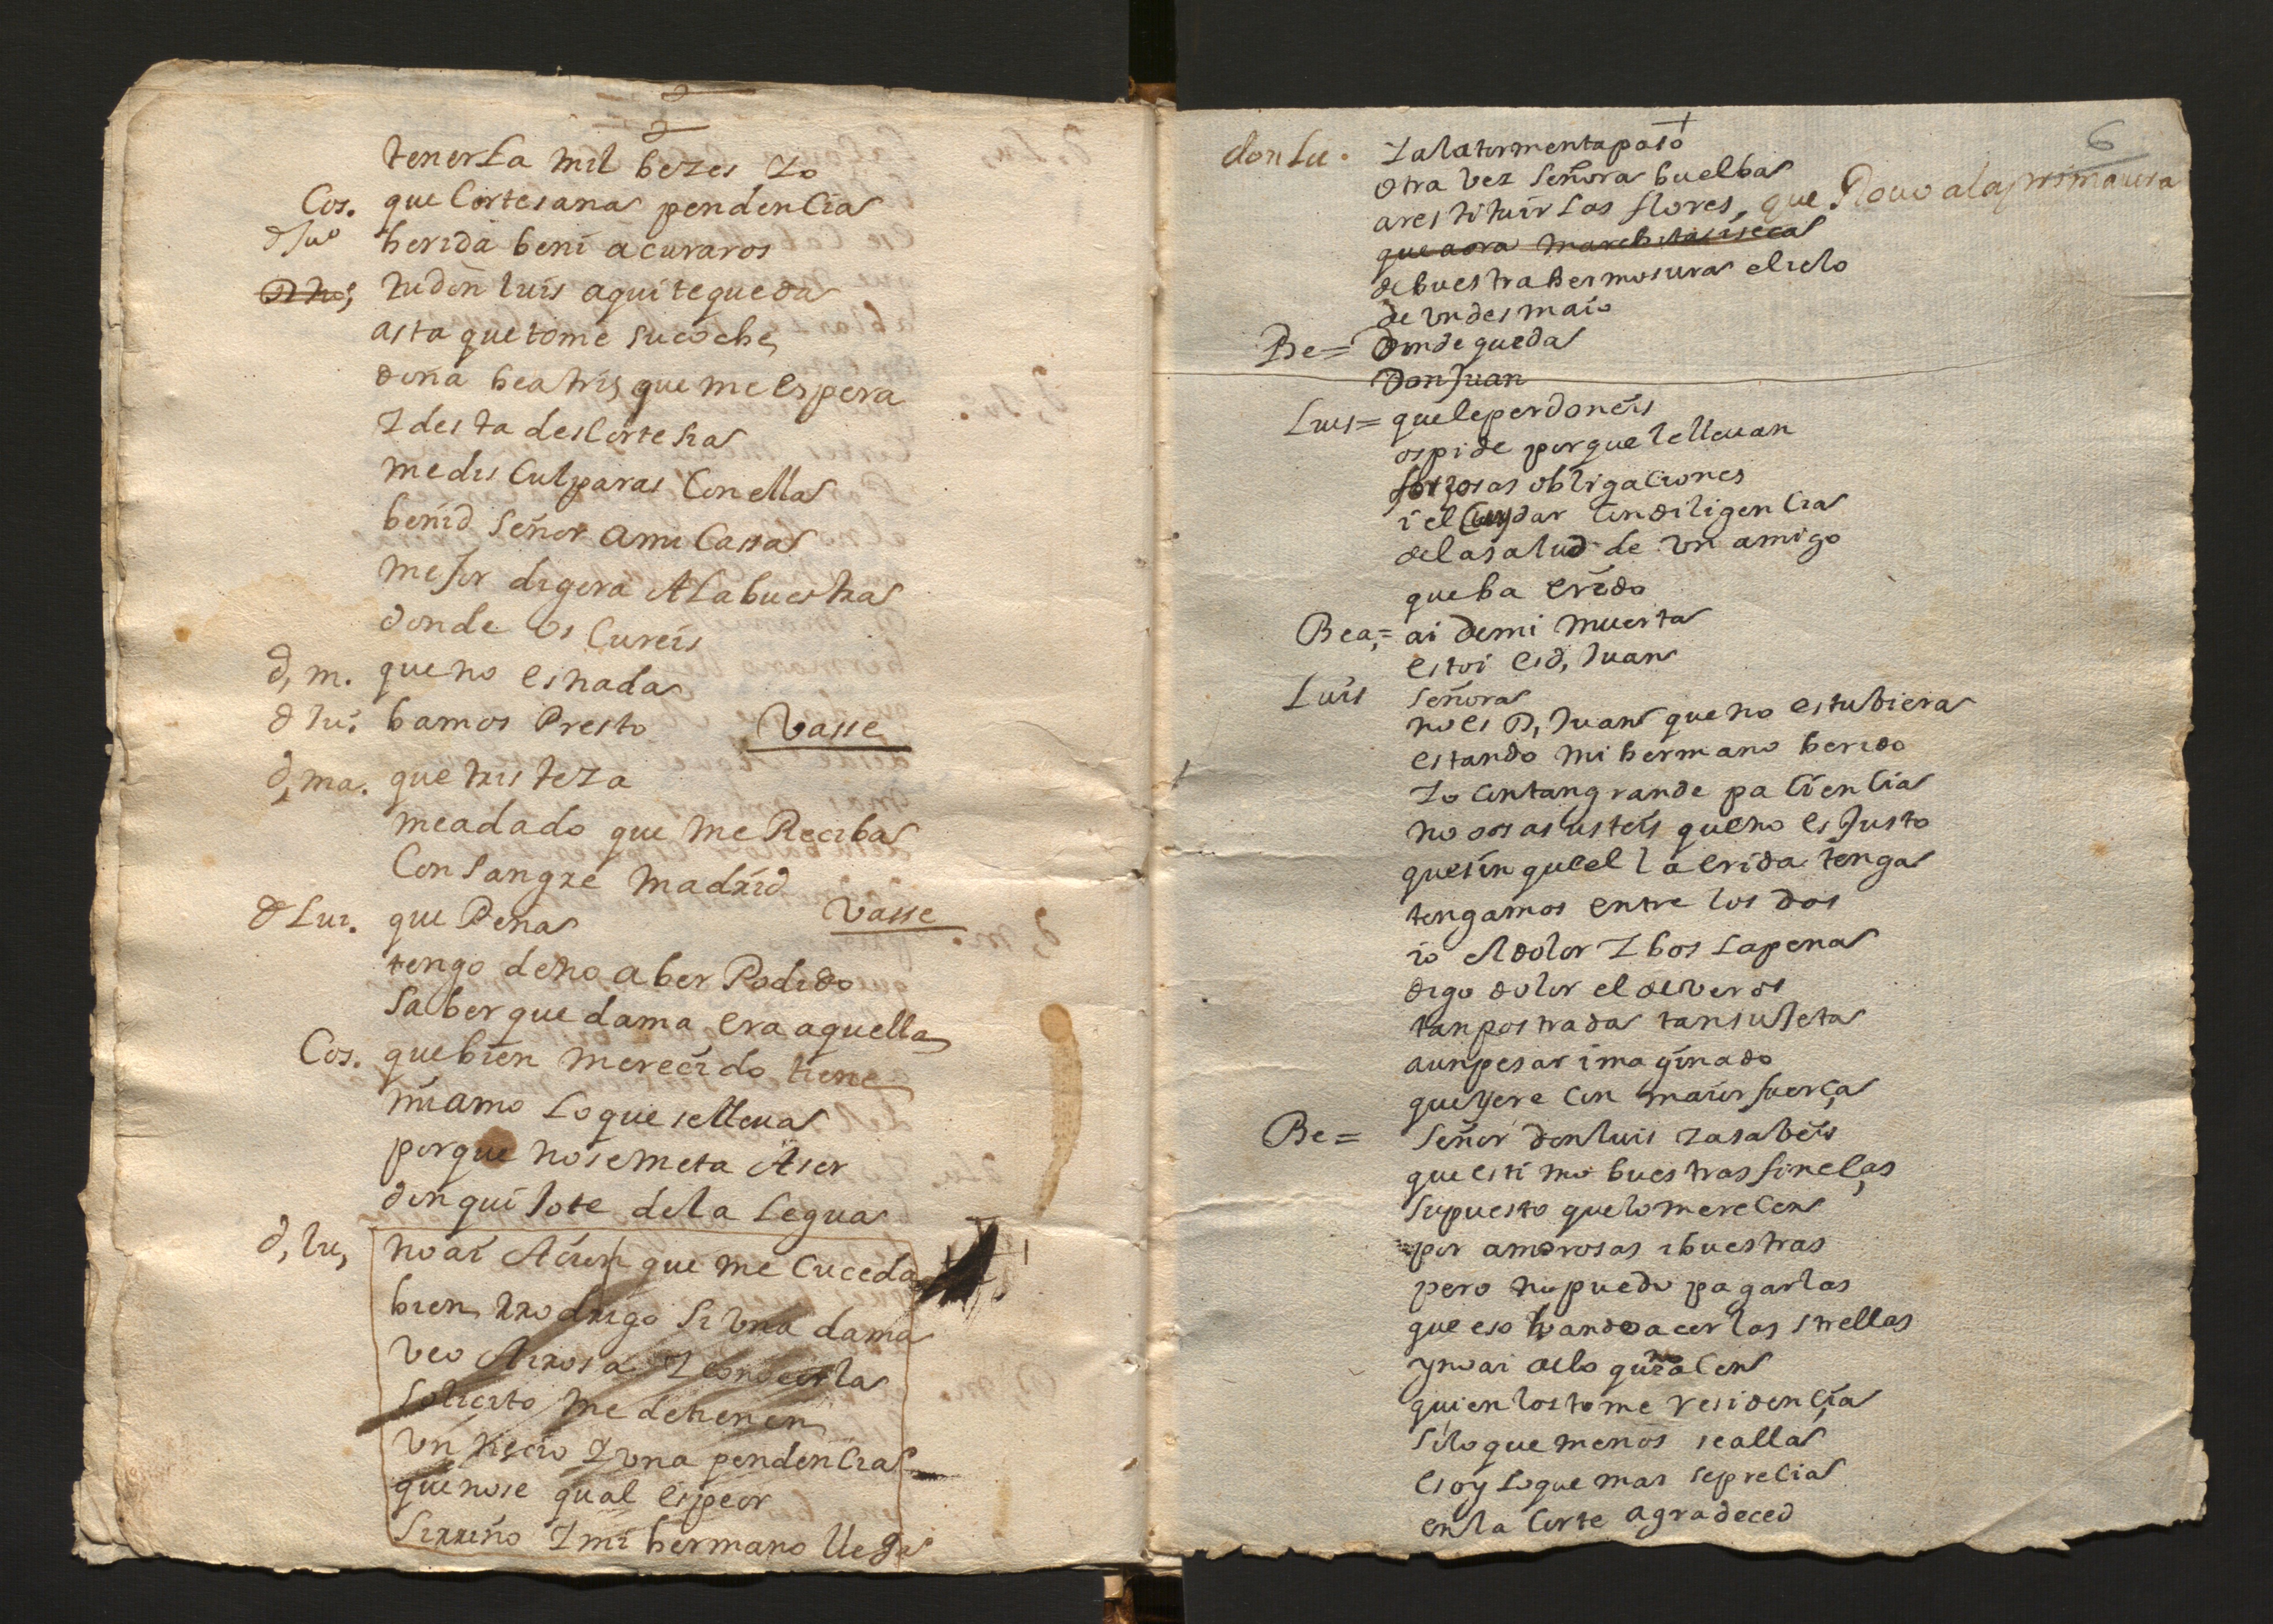 tenerla mil bezes Io
Cos. que Cortesana pendenCia
d Juo herida beni a curaros
tu don luis aqui te queda
asta que tome su coche
doña beatris que me espera
I desta desCortesia
me disCulparas Con ella
benid señor a mi Cassa
mejor digera A la buestra
donde os Cureis
d, m. que no es nada
d Ju: bamos Presto Vasse
d, ma. que tristeza
me a dado que me Reciba
Con sangre Madrid
Vasse
d Lui. que Pena
tengo de no aber Podido
saber que dama era aquella
Cos. que bien merecido tiene
mi amo lo que se lleua
porque no se meta A ser
don quijote de la legua
d, lu, no ai Acion que me Suceda
bien Rrodrigo si una dama
veo Airosa I conocerla
solicito me detienen
un necio I una pendenCia
que no se qual es peor
si rriño I mi hermano llega
6
don Lu. Ia la tormenta paso
otra vez señora buelba
a restituir las flores, que Robo a la primauera
que aora marchita i seca
de buestra hermosura el ielo
de un desmaio
Be= donde queda
Don Juan
Luis= que le perdoneis
os pide porque le lleuan
forzosas obligaciones
i el Cuydar con diligenCia
de la salud de un amigo
que ba erido
Bea,= ai de mi muerta
estoi es d, Juan
Luis señora
no es D, Juan que no estubiera
estando mi hermano herido
Io con tan grande paCienCia
no os asusteis que no es Justo
que sin que el la erida tenga
tengamos entre los dos
io el dolor I bos la pena
digo dolor el de veros
tan postrada tan sujeta
a un pesar imaginado
que yere con maior fuerça
Be= señor don luis ia sabeis
que estimo buestras fineças
supuesto que lo mereCen
por amorosas i buestras
pero no puedo pagarlas
que eso an de acer las strellas
y no ai de lo que no aCen
quien los tome residençia
si lo que menos se alla
es oy lo que mas se preCia
en la Corte agradeced